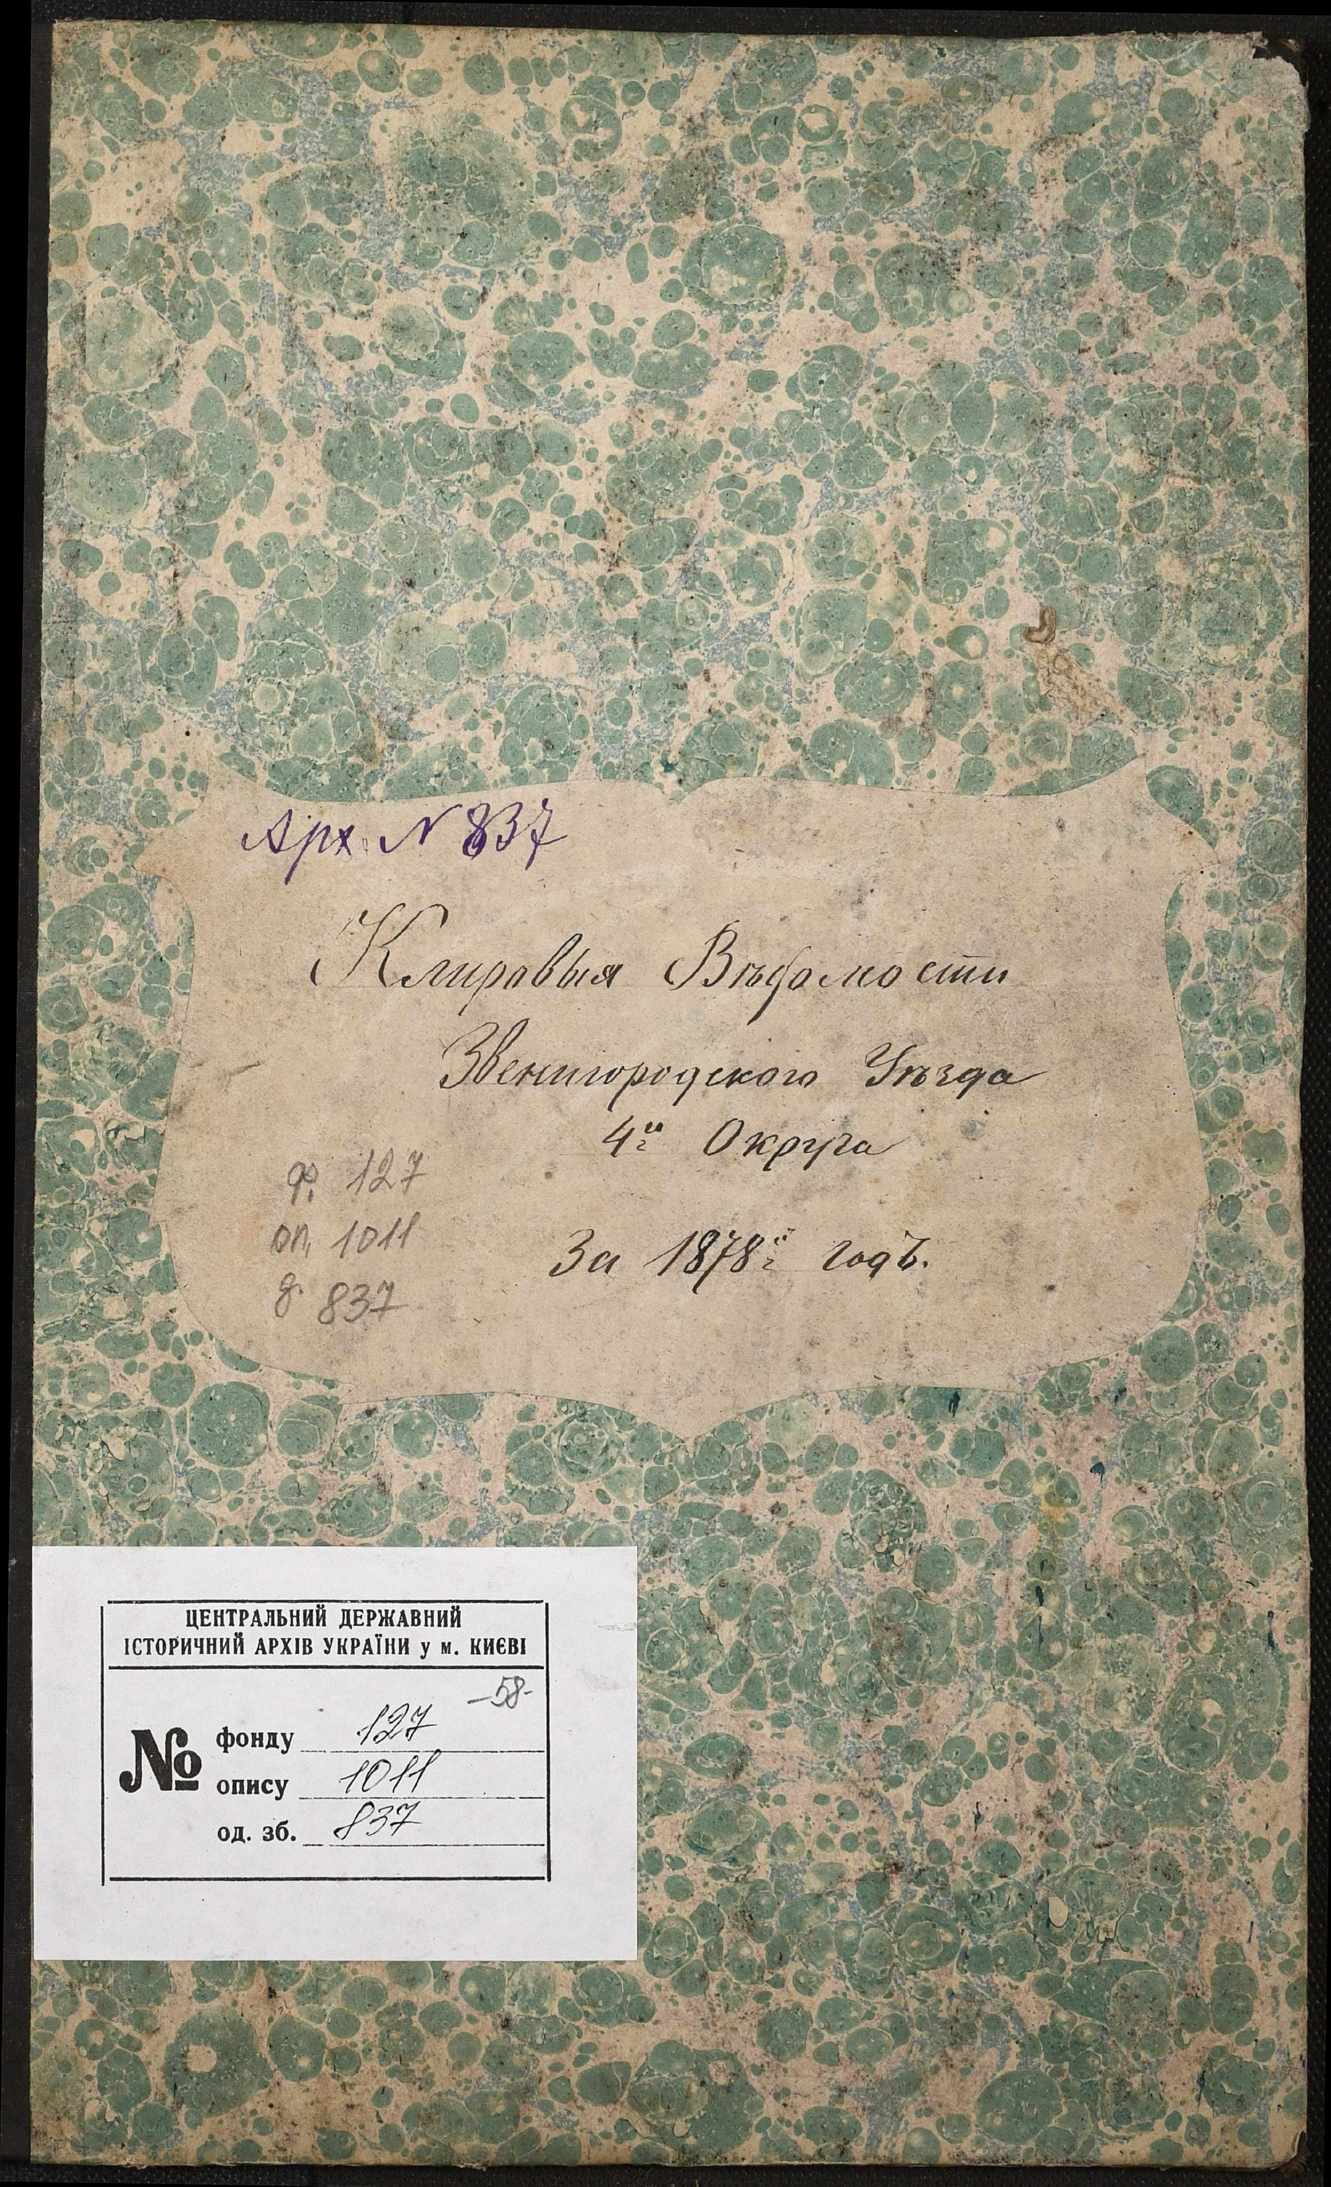 Арх. № 837
Клировыя Вѣдомости
Звенигородского Уѣзда
4го Округа
ф. 127
оп. 1011
За 1878й годъ.
д. 837
ЦЕНТРАЛЬНИЙ ДЕРЖАВНИЙ
ІСТОРИЧНИЙ АРХІВ УКРАЇНИ у м. КИЄВІ
-58-
№ фонду 127
опису 1011
од. зб. 837